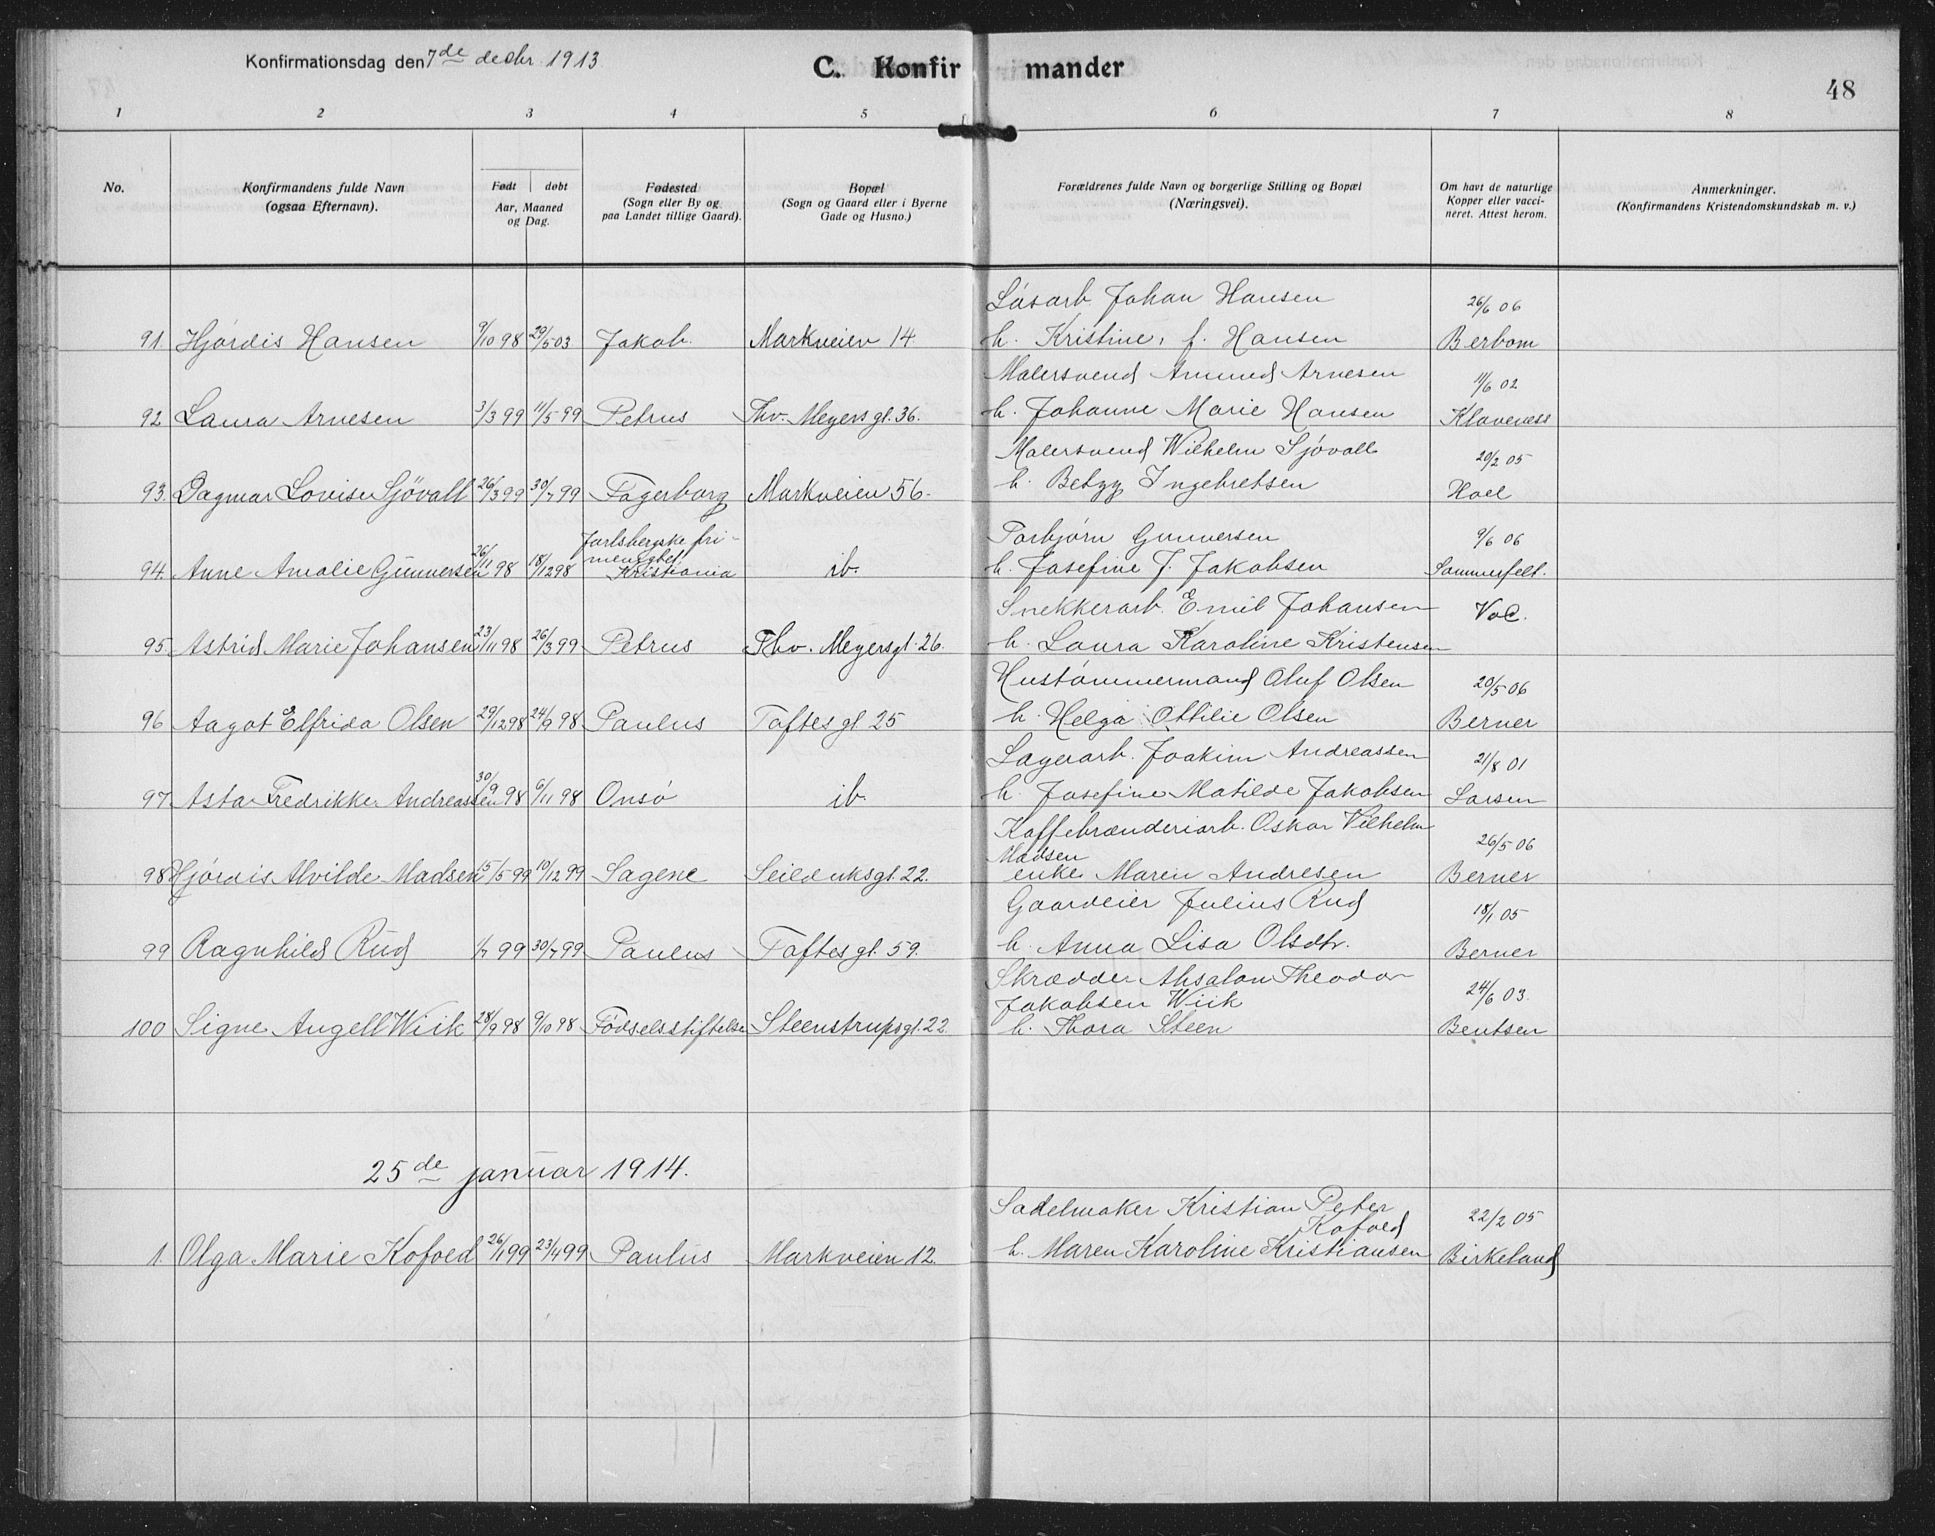 Konfirmationsdag den 7de decbr. 1913
C. Konfirmander
48
1 2 3 4 5 6 7 8
No.
Konfirmandens fulde Navn
(ogsaa Efternavn).
Født døbt
Aar, Maaned
og Dag.
Fødested
(Sogn eller By og
paa Landet tillige Gaard).
Bopæl
(Sogn og Gaard eller i Byerne
Gade og Husno.)
Forældrenes fulde Navn og borgerlige Stilling og Bopæl
(Næringsvei).
Om havt de naturlige
Kopper eller vacci-
neret. Attest herom.
Anmerkninger.
(Konfirmandens Kristendomskundskab m. v.)
Løsarb. Johan Hansen 26/6 06
91. Hjørdis Hansen 9/10 98 29/5 03 Jakob. Markveien 14 h. Kristine, f. Hansen Berbom
Malersvend Amund Arnesen 11/6 02
92 Laura Arnesen 3/3 99 11/5 99 Petrus Thv. Meyers gt. 36. h. Johanne Marie Hansen Klaveness
Malersvend Wilhelm Sjøvall 20/2 05
93. Dagmar Lovise Sjövall 26/3 99 30/7 99 Fagerborg Markveien 56. h. Betzy Ingebretsen Hoel
Jarlsbergske fri-
menighet
Torbjørn Gunnersen 9/6 06
94. Anne Amalie Gunnersen 26/11 98 18/12 98 Kristiania ib. h. Josefine J. Jakobsen Sommerfelt.
Snekkerarb. Emil Johansen Vac.
95. Astrid Marie Johansen 23/11 98 26/3 99 Petrus Thv. Meyersgt. 26. h. Laura Karoline Kristensen
Hustømmermand Oluf Olsen 20/5 06
96 Aagot Elfrida Olsen 29/12 98 24/9 98 Paulus Toftes gt 25 h. Helga Ottilie Olsen Berner
Lagerarb. Joakim Andreassen 21/8 01
97. Asta Fredrikke Andreassen 30/9 98 6/11 98 Onsø ib. h. Josefine Matilde Jakobsen Larsen
Kaffebrænderiarb. Oskar Vilhelm
Madsen 26/5 06
98 Hjørdis Alvilde Madsen 15/5 99 10/12 99 Sagene Seilduksgt. 22. enke Maren Andresen Berner
Gaardeier Julius Rud 18/1 05
99 Ragnhild Rud 1/7 99 30/7 99 Paulus Toftes gt. 59. h. Anna Lisa Olsdtr. Berner
Skrædder Absalon Theodor
Jakobsen Wiik 24/6 03.
100 Signe Angell Wiik 28/9 98 9/10 98 Födselsstiftelsen Steenstrupsgt. 22 h. Thora Steen Bentsen
25de januar 1914.
Sadelmaker Kristian Peter
Kofoed 22/2 05
1. Olga Marie Kofoed 26/1 99 23/4 99 Paulus Markveien 12. h. Maren Karoline Kristiansen Birkeland